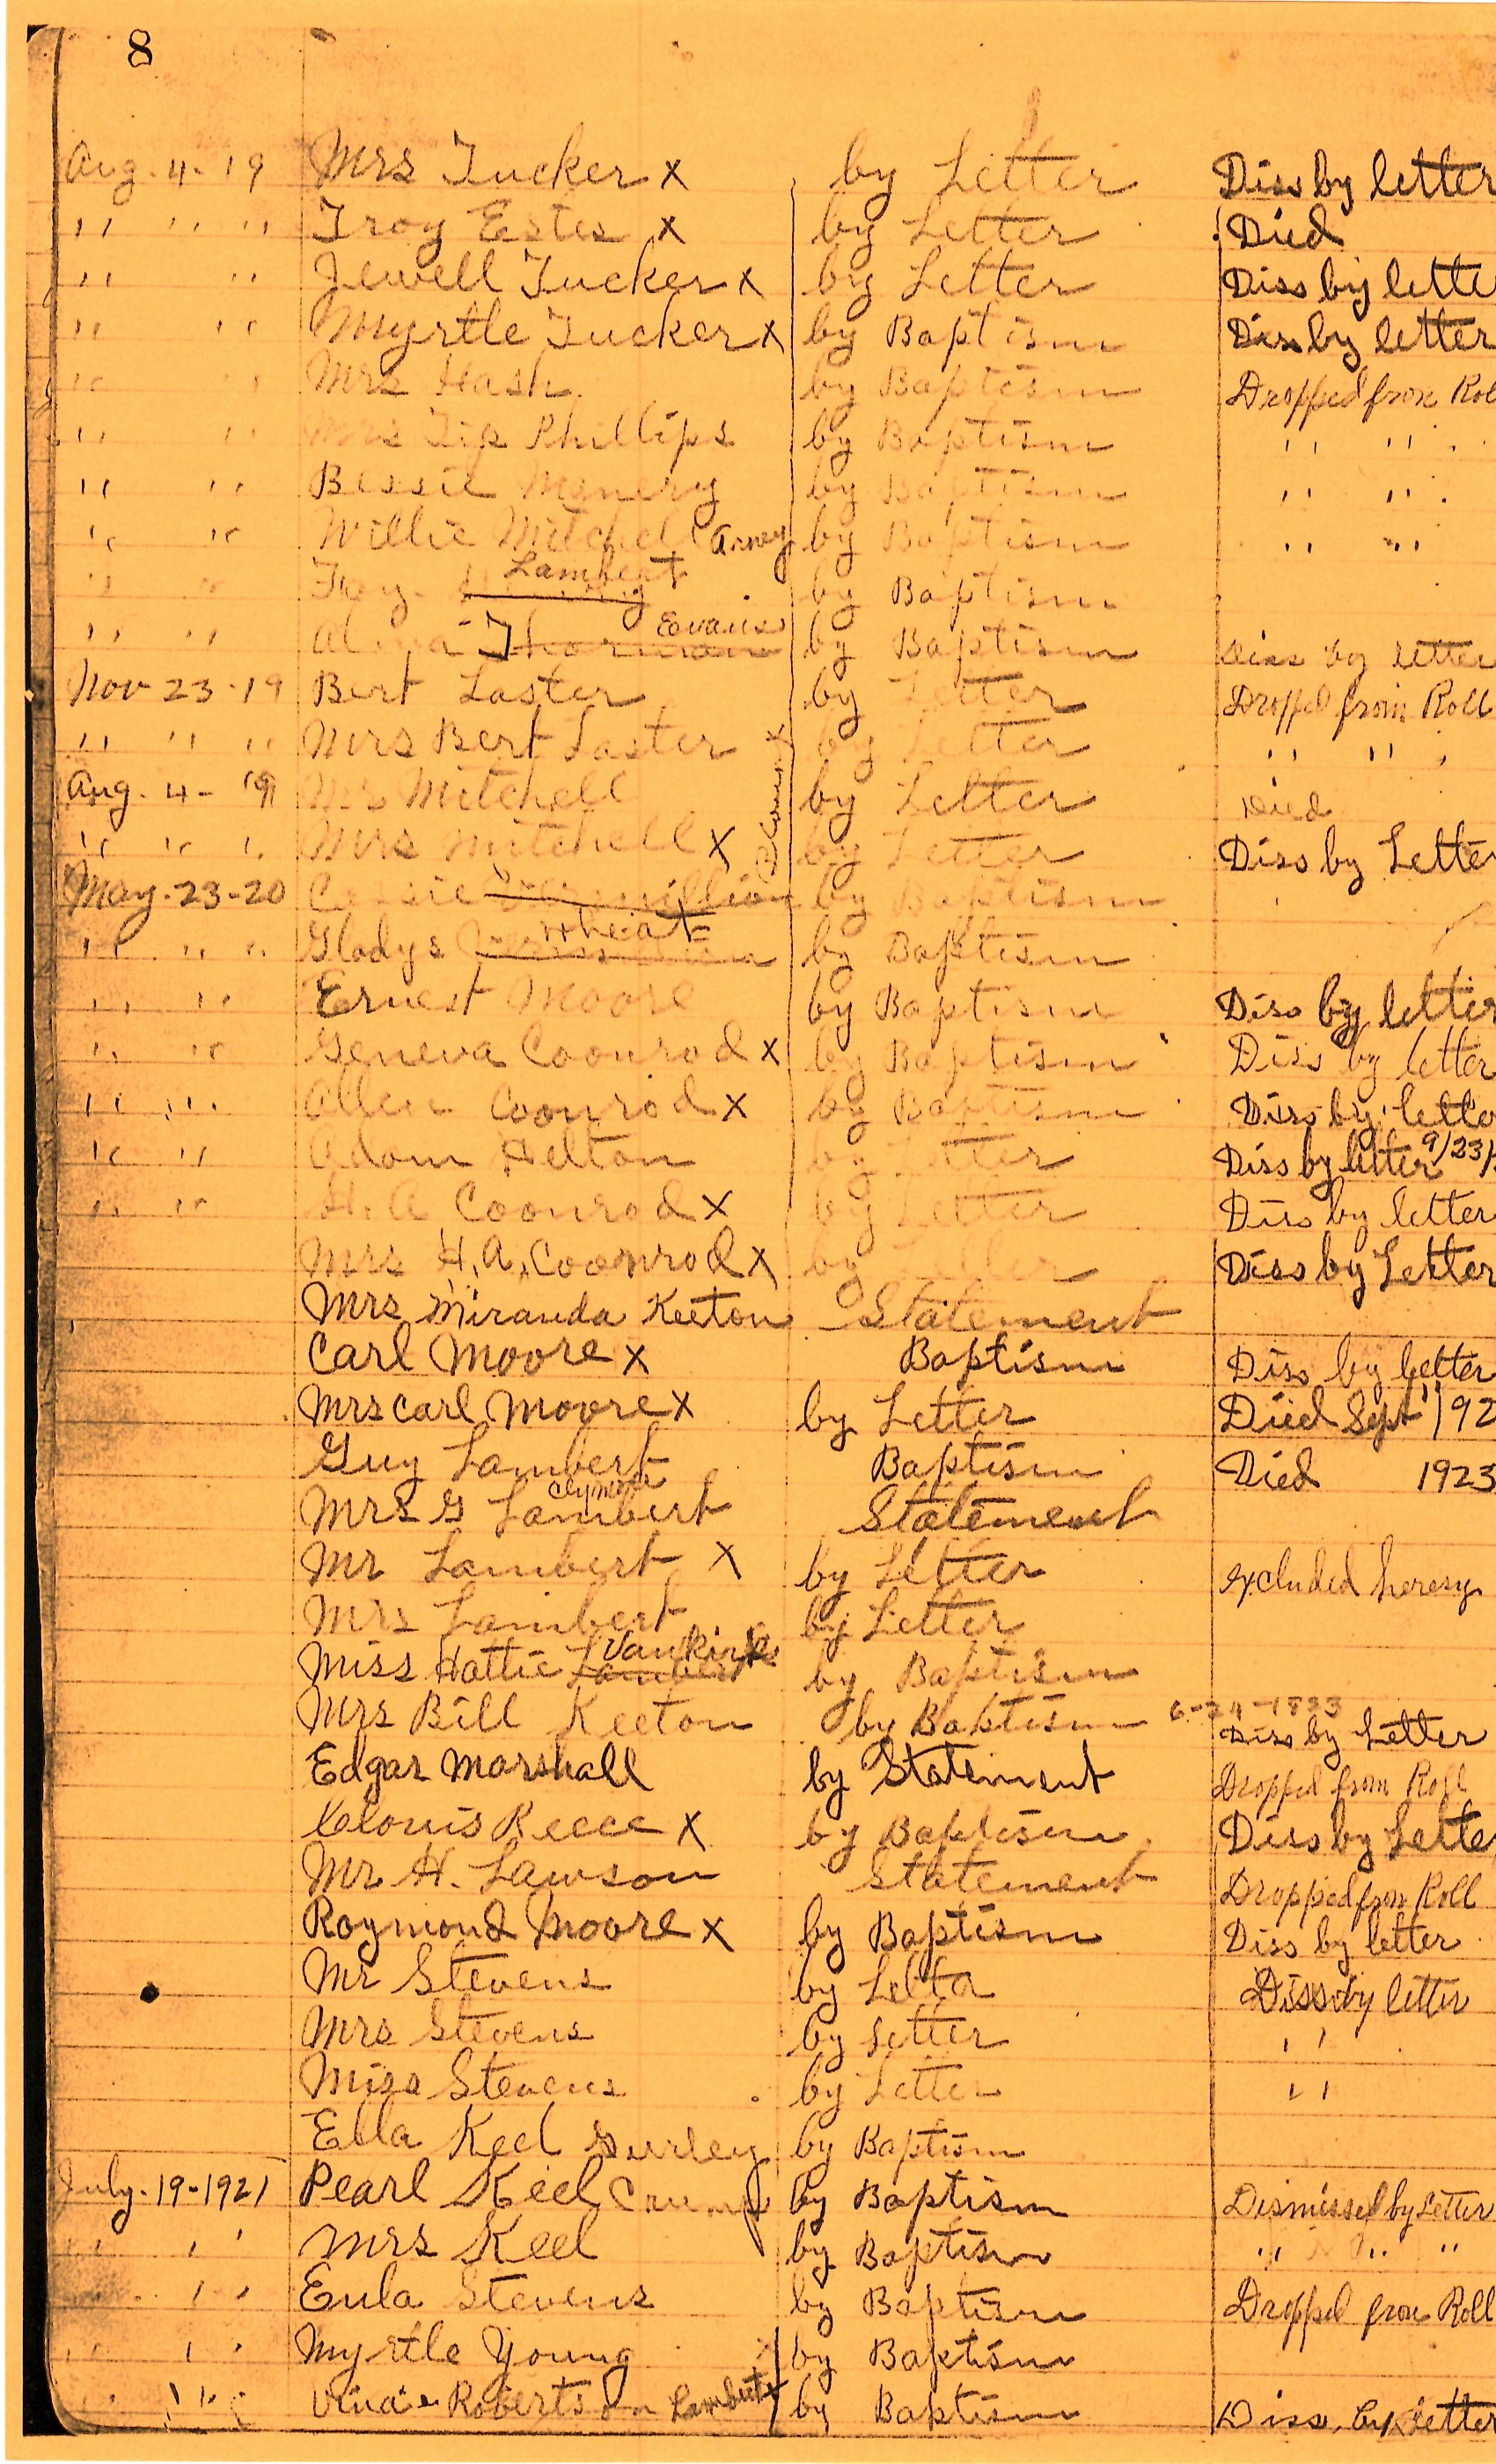 8
Aug. 4. 19 Mrs Tucker x by Letter Diss by letter
" " " Troy Estes x by Letter Died
" " Jewell Tucker x by Letter Diss by lette
" " Myrtle Tucker x by Baptism Diss by letter
" " Mrs Hash by Baptism Dropped from Rol
" " Mrs Tip Phillips by Baptism " "
" " Bessie by Baptism " "
" " Willie Mitchel Arney by Baptism " "
Lambert
" " by Baptism
Evans
" " by Baptism Diss by letter
Nov 23-19 Bert Laster by Letter Dropped from Roll
" " " Mrs Bert Laster by Letter " "
Aug. 4 - 19 Mr Mitchell by Letter Died
" " " Mrs Mitchell x by Letter Diss by Letter
May. 23-20 by Baptism
Wheat
" " " Gladys by Baptism
" " Ernest Moore by Baptism Diss by letter
" " Geneva Coonrod x by Baptism Diss by letter
" " Allen Coonrod x by Baptism Diss by lette
" " Adam Helton by Letter Diss by letter 9/23/
" " H. A Coonrod x by Letter Diss by letter
Mrs H. A. Coonrod x by Letter Diss by Letter
Mrs Miranda Keeton Statement
Carl Moore x Baptism Diss by letter
Mrs Carl Moore x by Letter Died Sept 192
Guy Lambert Baptism Died 1923
Mrs G Lambert Statement
Mr Lambert x by Letter excluded heresy
Mrs Lambert by Letter
Vankirk
Miss Hattie Lambert by Baptism
Mrs Bill Keeton by Baptism Diss by Letter
Edgar Marshall by Statement Dropped from Roll
Clovis Reece x by Baptism Diss by Lette
Mr H. Lawson Statement Dropped from Roll
Raymond Moore x by Baptism Diss by letter
Mr Stevens by Letter Diss by letter
Mrs Stevens by Letter " "
Miss Stevens by Letter " "
Ella Keel Gurley by Baptism
July. 19-1921 Pearl Keel Crump by Baptism Dismissed by Letter
" " Mrs Keel by Baptism " " "
" " Eula Stevens by Baptism Dropped from Roll
" " Myrtle Young by Baptism
" " Robertson Lambert by Baptism Diss. by letter